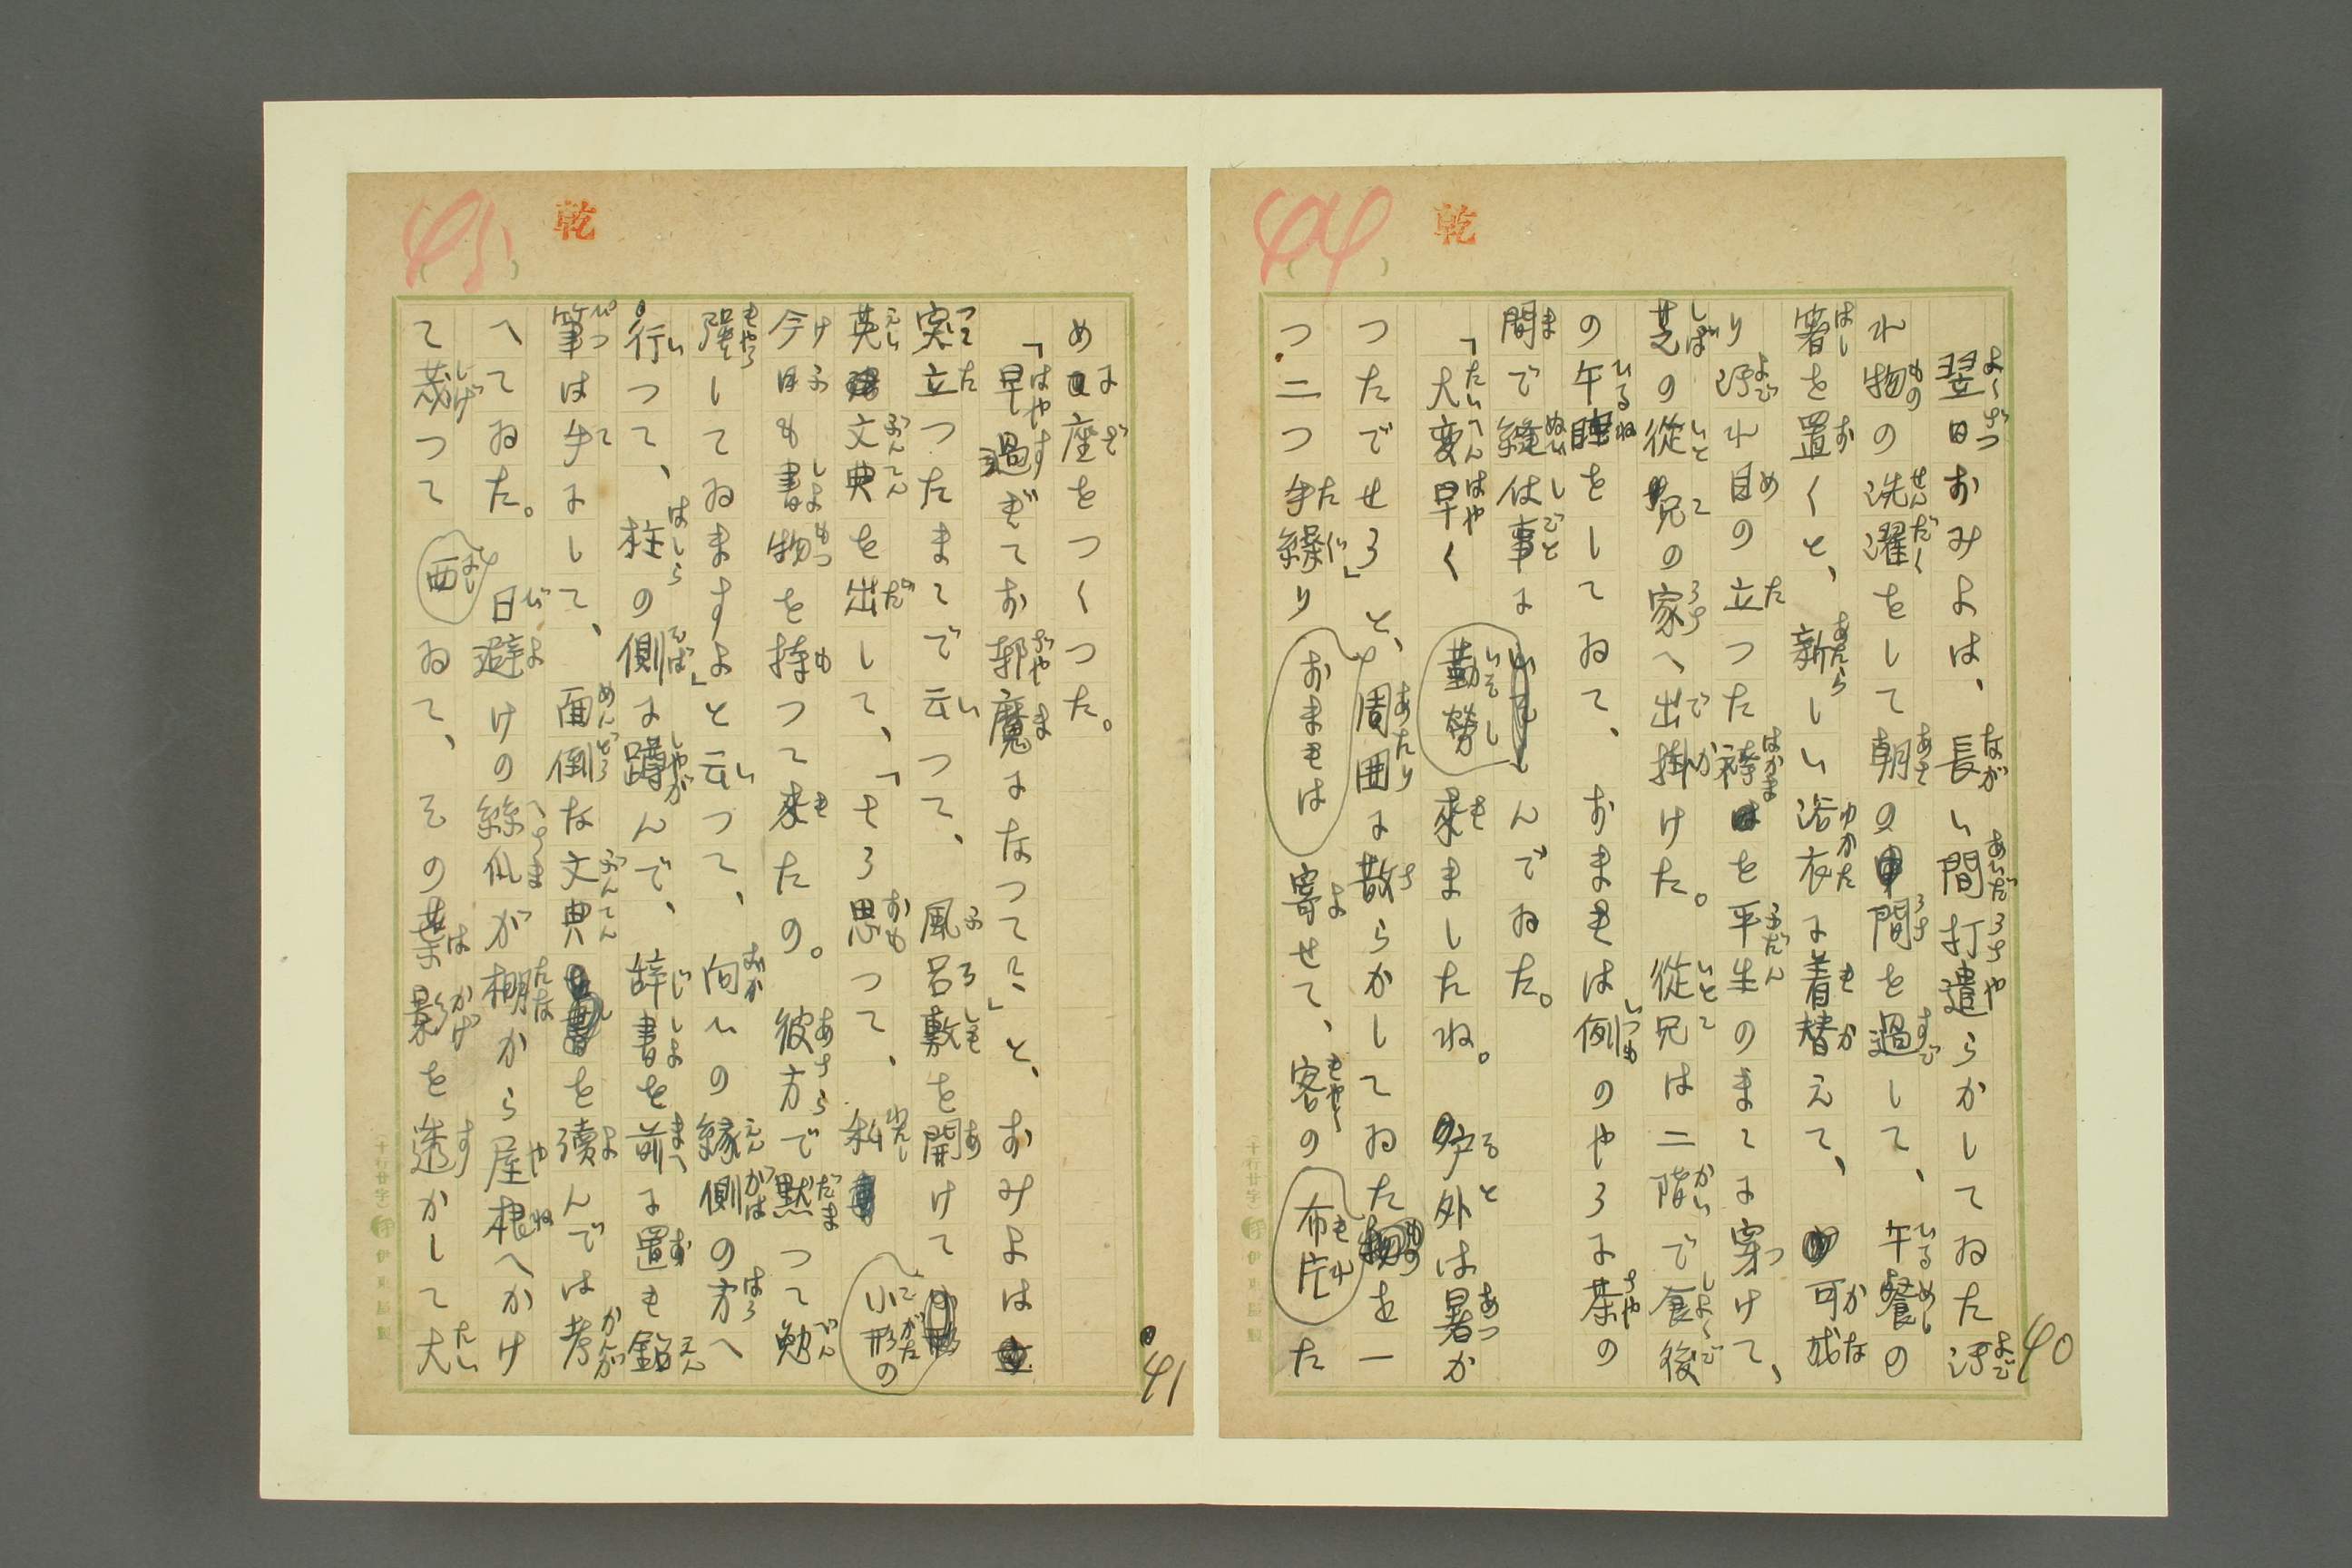 44
乾
40
翌日おみよは、長い間打遣らかしてゐた汚
れ物の洗濯をして朝の間を過して、午餐の
箸を置くと、新しい浴衣に着替えて、可成
り汚れ目の立つた袴を平生のまゝに穿けて、
芝の従兄の家へ出掛けた。従兄は二階で食後
の午睡をしてゐて、おまきは例のやうに茶の
間で縫仕事にいそしんでゐた。
「大変早く来ましたね。戸外は暑か
つたでせう」と、周囲に散らかしてゐた物を一
つ二つ手繰りおまきは寄せて、客の布片た
45
乾
41
めに座をつくつた。
「早過ぎてお邪魔になつて？」と、おみよは
突立つたまゝで云つて、風呂敷を開けて小形の
英文典を出して、「さう思つて、私
今日も書物を持つて来たの。彼方で黙つて勉
強してゐますよ」と云つて、向ひの縁側の方へ
行つて、柱の側に蹲んで、辞書を前に置き鉛
筆は手にして、面倒な文典を読んでは考
へてゐた。日避けの絲瓜が棚から屋根へかけ
て茂つてゐて、その葉影を透かして大